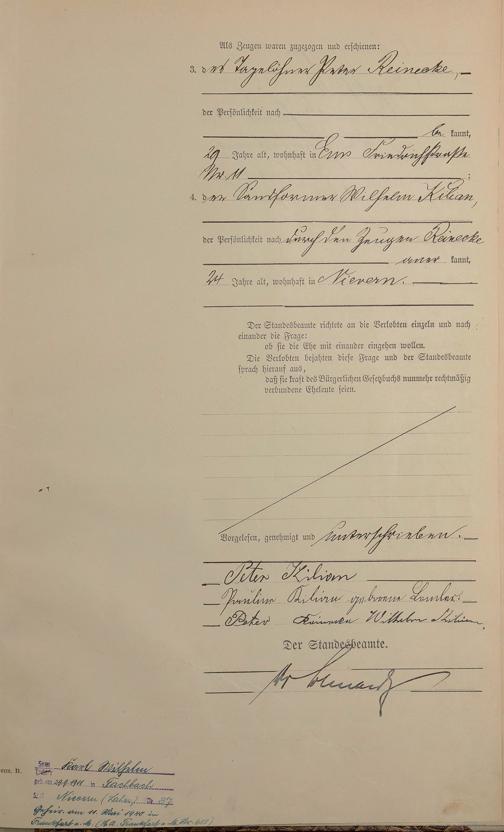 Als Zeugen waren zugezogen und erschienen:
3. der Tagelöhner Peter Reinecke,
der Persönlichkeit nach
be kannt,
29 Jahre alt, wohnhaft in Ems Friedrichstraße
Nr 11 ;
4. der Sandformer Wilhelm Kilian,
der Persönlichkeit nach durch den Zeugen Reinecke
aner kannt,
24 Jahre alt, wohnhaft in Nievern.
Der Standesbeamte richtete an die Verlobten einzeln und nach
einander die Frage:
ob sie die Ehe mit einander eingehen wollen.
Die Verlobten bejahten diese Frage und der Standesbeamte
sprach hierauf aus,
daß sie kraft des Bürgerlichen Gesetzbuchs nunmehr rechtmäßig
verbundene Eheleute seien.
Vorgelesen, genehmigt und unterschrieben.
Peter Kilian
Pauline Kilian geborene
Peter Reinecke Wilhelm Kilian
Der Standesbeamte.
B.
Karl Wilhelm
geb. am 1911 in Fachbach
Nievern (Lahn) 27
Geheir. am 11. Mai 1940 in
Frankfurt a. M.